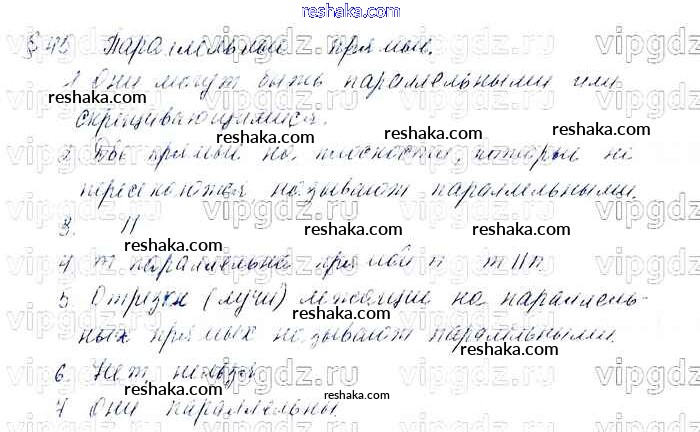 reshaka.com
§ 45 Параллельные прямые.
1 Они могут быть параллельными или
скрещивающимися.
2 Две прямые на плоскости, которые не
пересекаются, называют параллельными.
3. ||
4. m параллельна прямой n m||n
5. Отрезки (лучи) лежащие на параллель-
ных прямых называют параллельными.
6. Нет, нельзя
7 Они параллельны